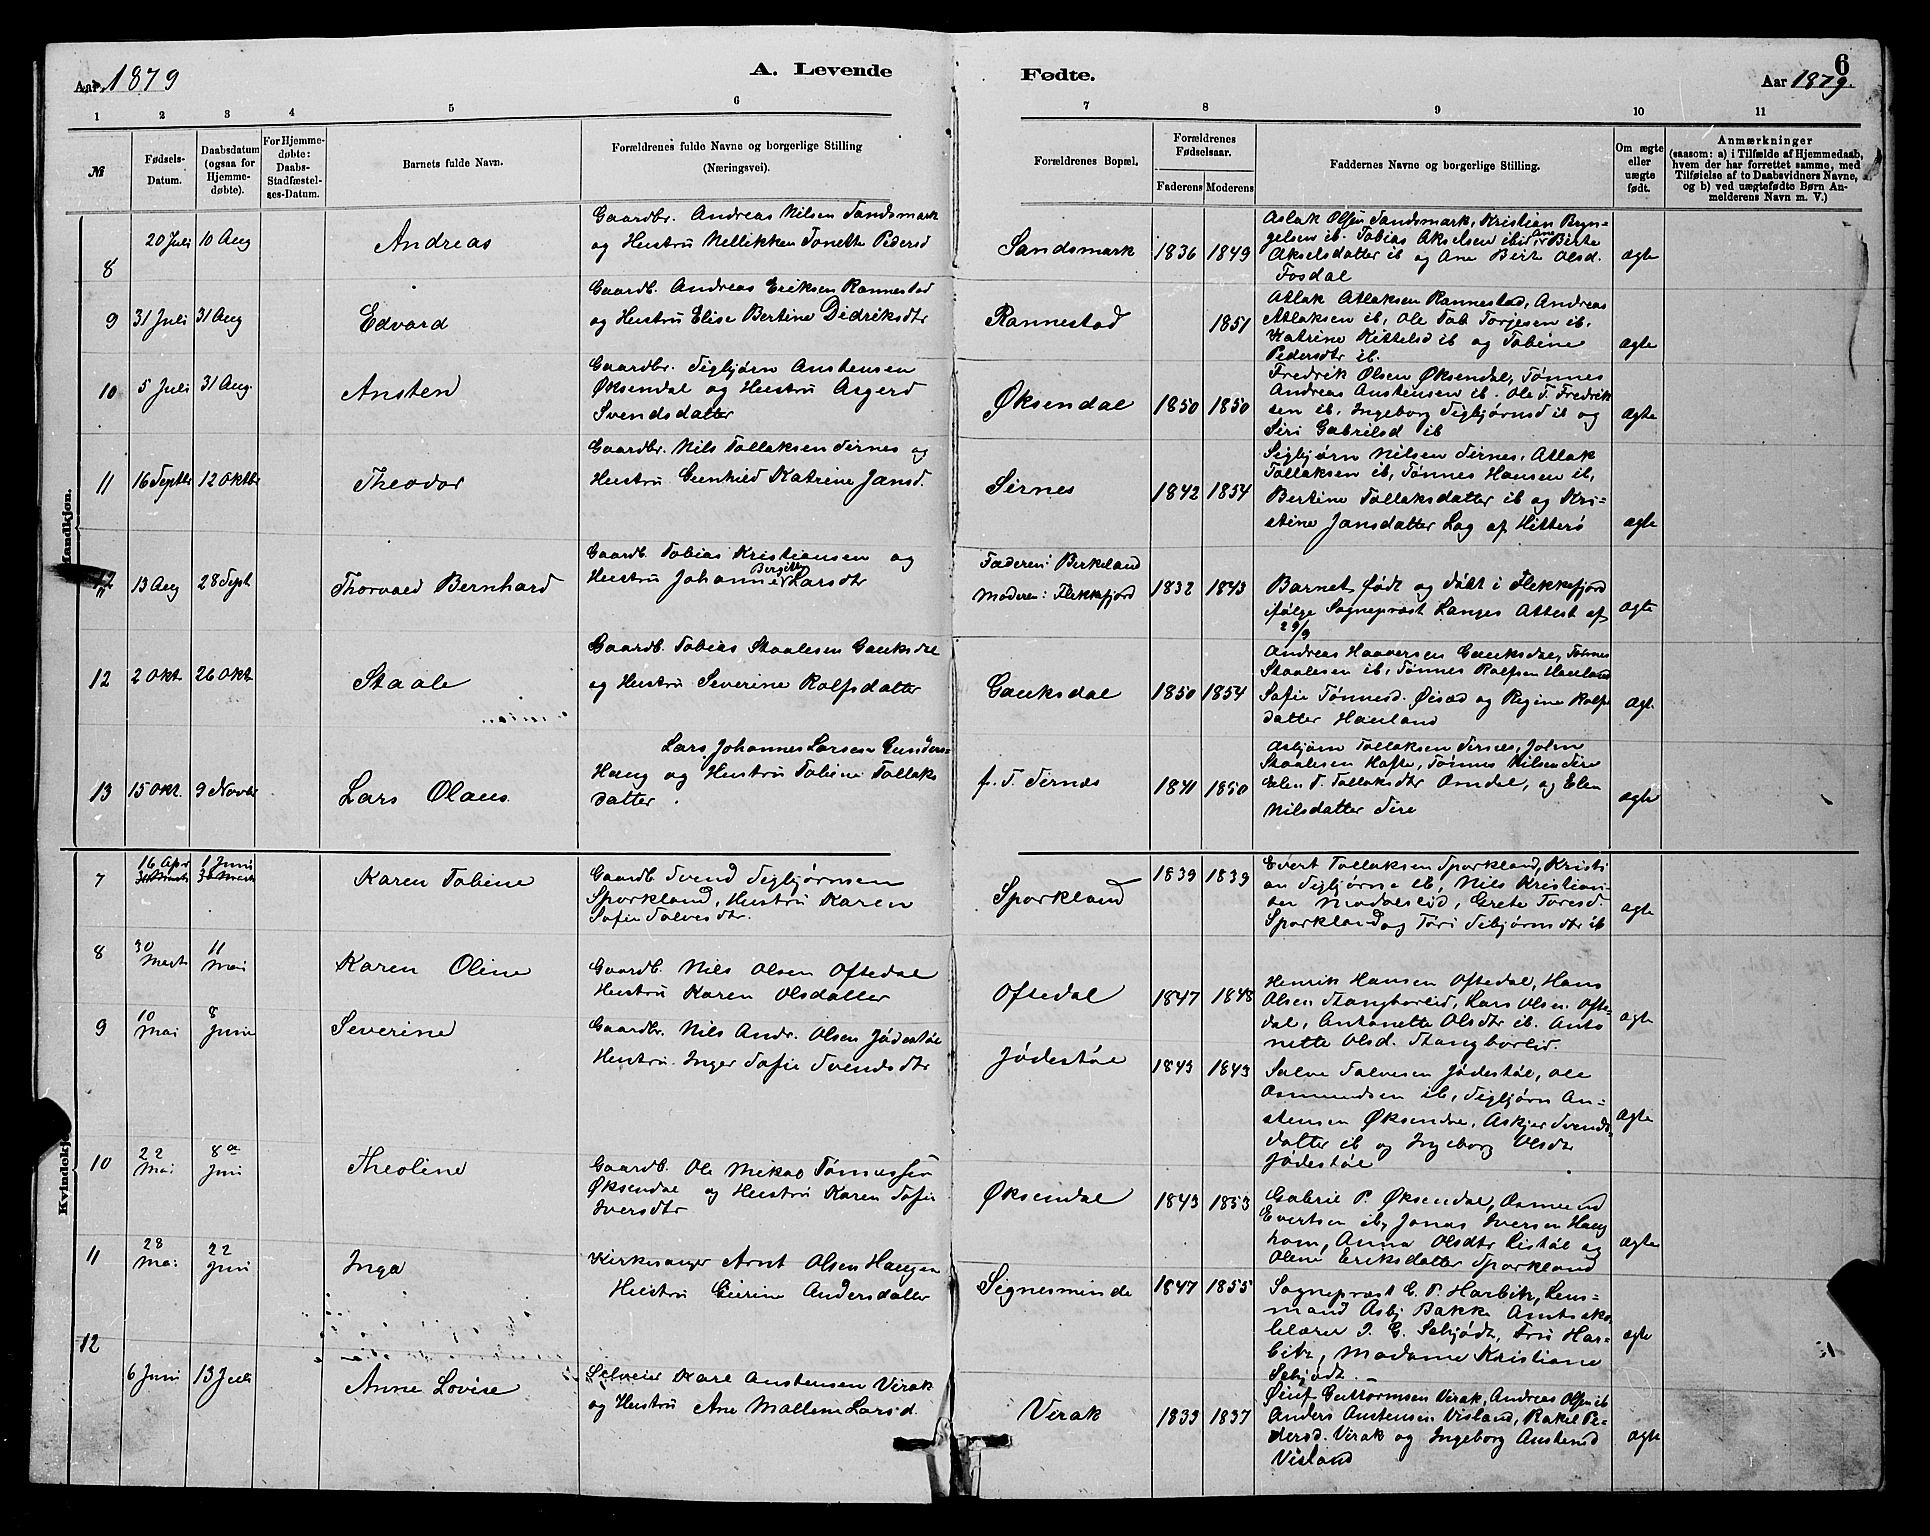 Aar 1879
A. Levende
Fødte.
6
Aar 1879.
1 2 3 4 5 6 7 8 9 10 11
№
Fødsels-
Datum.
Daabsdatum
(ogsaa for
Hjemme-
døbte).
For Hjemme-
døbte:
Daabs-
Stadfæstel-
ses-Datum.
Barnets fulde Navn.
Forældrenes fulde Navne og borgerlige Stilling
(Næringsvei).
Forældrenes Bopæl.
Forældrenes
Fødselsaar.
Faderens Moderens
Faddernes Navne og borgerlige Stilling.
Om ægte
eller
uægte
født.
Anmærkninger
(saasom: a) i Tilfælde af Hjemmedaab,
hvem der har forrettet samme, med
Tilføielse af to Daabsvidners Navne,
og b) ved uægtefødte Børn An-
melderens Navn m. V.)
Mandkjøn.
8 20 Juli 10 Aug Andreas
Gaardbr. Andreas Nilsen Sandsmark
og Hustru Nellikken Tonette Pedersd
Sandsmark 1836 1849
Aslak Olsen Sandsmark, Kristian Bryn-
gelsen ib. Tobias Akselsen ibid, Ane Birte
Akselsdatter ib og Ane Birte Olsd.
Fosdal
ægte
9 31 Juli 31 Aug Edvard
Gaardb. Andreas Eriksen Rannestad
og Hustru Elise Bertine Didriksdtr
Rannestad 1851
Atlak Atlaksen Rannestad, Andreas
Atlaksen ib, Ole Tob Torjesen ib,
Katrine Kittelsd ib og Tobine
Pedersdtr ib.
ægte
10 5 Juli 31 Aug. Ansten
Gaardbr. Sigbjørn Anstensen
Øksendal og Hustru Asgerd
Svendsdatter
Øksendal 1850 1850
Fredrik Olsen Øksendal, Tønnes
Andreas Anstensen ib. Ole T. Fredrik
sen ib, Ingeborg Sigbjørnsd ib og
Siri Gabrielsd ib
ægte
11 16 Septbr 12 Oktbr Theodor
Gaardbr. Nils Tollaksen Sirnes og
Hustru Gunhild Katrine Jansd.
Sirnes 1842 1854
Sigbjørn Nilsen Sirnes, Atlak
Tollaksen ib, Tønnes Hansen ib,
Bertine Tollaksdatter ib og Kri-
stine Jansdatter Log af Hitterø
ægte
12 13 Aug 28 Sept Thorvald Bernhard
Gaardb. Tobias Kristiansen og
Hustru Johanne Bergitte Larsdtr
Faderen: Birkeland
Moderen: Flekkefjord 1832 1843
Barnet født og døbt i Flekkefjord
ifølge Sognepræst Langes Attest af
29/9
ægte
12 2 Okt. 26 Okt. Staale
Gaardb. Tobias Staalesen Gauksdal
og Hustru Severine Rolfsdatter
Gauksdal 1850 1854
Andreas Haaversen Gauksdal, Tønnes
Staalesen ib, Tønnes Rolfsen Hauland
Sofie Tønnesd. Øisæd og Regine Rolfs
datter Hauland
ægt.
13 15 Okt. 9 Novbr Lars Olaus
Lars Johannes Larsen Gunders-
Haug og Hustru Tobine Tollaks
datter.
f. T. Sirnes 1841 1850
Asbjørn Tollaksen Sirnes, John
Staalesen Hafte, Tønnes Nilsen Sire
Elen T. Tollaksdtr Omdal, og Elen
Nilsdatter Sire
ægte
Kvindekjøn.
7 16 Apr 1 Juni Karen Tobine
Gaardb Svend Sigbjørnsen
Sporkland, Hustru Karen
Sofie Salvesdtr.
Sporkland 1839 1839
Evert Tollaksen Sporkland, Kristi
an Sigbjørns ib, Nils Kristian-
sen Modalslid, Grete Toresd.
Sporkland og Tori Sibjørnsdtr ib
ægte
8 30 Marts 11 Mai Karen Oline
Gaardb. Nils Olsen Oftedal
Hustru Karen Olsdatter
Oftedal 1847 1848
Henrik Hansen Oftedal, Hans
Olsen Stangborlid, Lars Olsen Ofte-
dal, Antonette Olsdtr ib. Anto
nette Olsd. Stangborlid.
ægte
9 10 Mai 8 Juni Severine
Gaardbr. Nils Andr. Olsen Jødestøl
Hustru Inger Sofie Svendsdtr
Jødestøl 1843 1843
Salve Salvesen Jødestøl, Ole
Osmundsen ib, Sigbjørn An-
stensen Øksendal, Askjer Svends-
datter ib og Ingeborg Olsdtr
Jødestøl
ægte
10 22 Mai 8de Juni Theoline
Gaardb. Ole Mikal Tønnessen
Øksendal og Hustru Karen Sofie
Iversdtr
Øksendal 1843 1853
Gabriel P. Øksendal, Osmund
Evertsen ib, Jonas Iversen Haug
hom, Anna Olsdtr Listøl og
Oline Eriksdatter Sporkland
ægte
11 28 Mai 22 Juni Inga
Kirkesanger Arnt Olsen Haugen
Hustru Gurine Andersdatter
Signesminde 1847 1855
Sognepræst G. P. Harbitz, Lens-
mand Asbj Bakke Amtssko
lelærer J. G. Schjødt, Fru Har-
bitz, Madame Kristiane
Schjødt.
ægte
12 6 Juni 13 Juli Anne Lovise
Selveier Karl Anstensen Virak
og Hustru Ane Mallene Larsd.
Virak 1833 1837
Guttormsen Virak, Andreas Olsen ib
Anders Anstensen Visland, Rakel Pe-
dersd. Virak og Ingeborg Anstensd
Visland
ægte